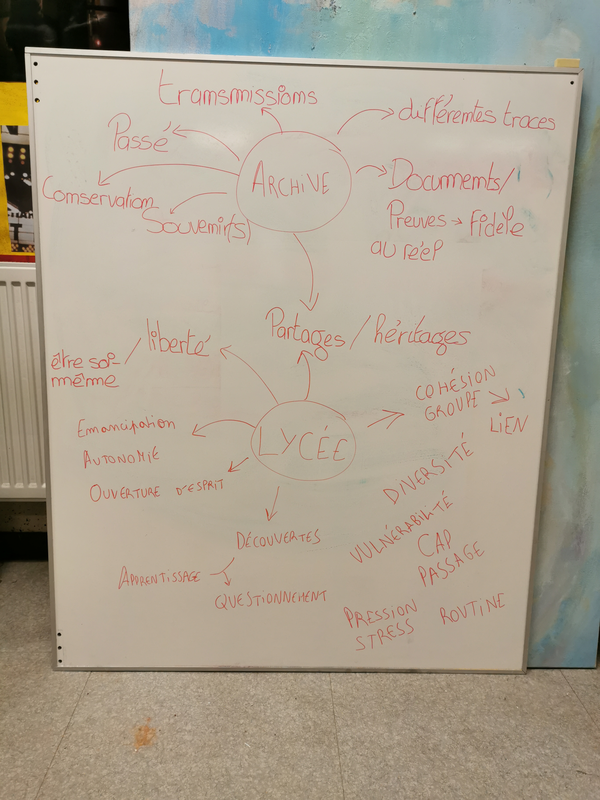 transmissions
différentes traces
Passé
ARCHIVE
Documents/
Conservation
Souvenir(s)
Preuves → Fidèle
au réel
Partages / héritages
liberté /
être soi-
même
COHÉSION
GROUPE
LIEN
Emancipation
AUTONOMIE
OUVERTURE D'ESPRIT
LYCÉE
DIVERSITÉ
VULNÉRABILITÉ
CAP
PASSAGE
DÉCOUVERTES
APPRENTISSAGE
QUESTIONNEMENT
PRESSION
STRESS
ROUTINE